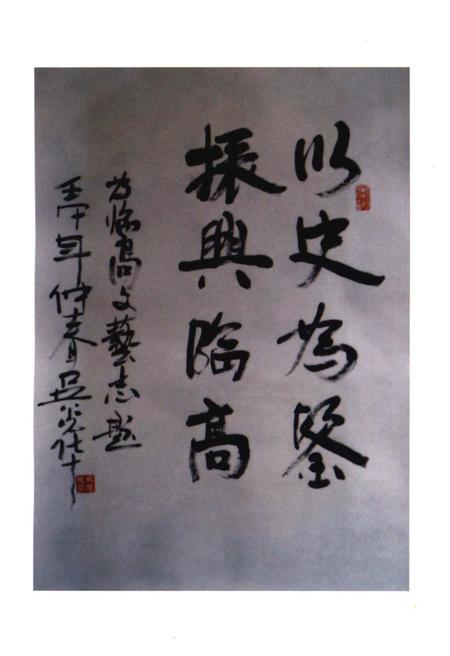 以史为鉴
振興临高
为临高文藝志题
壬午年仲春吴